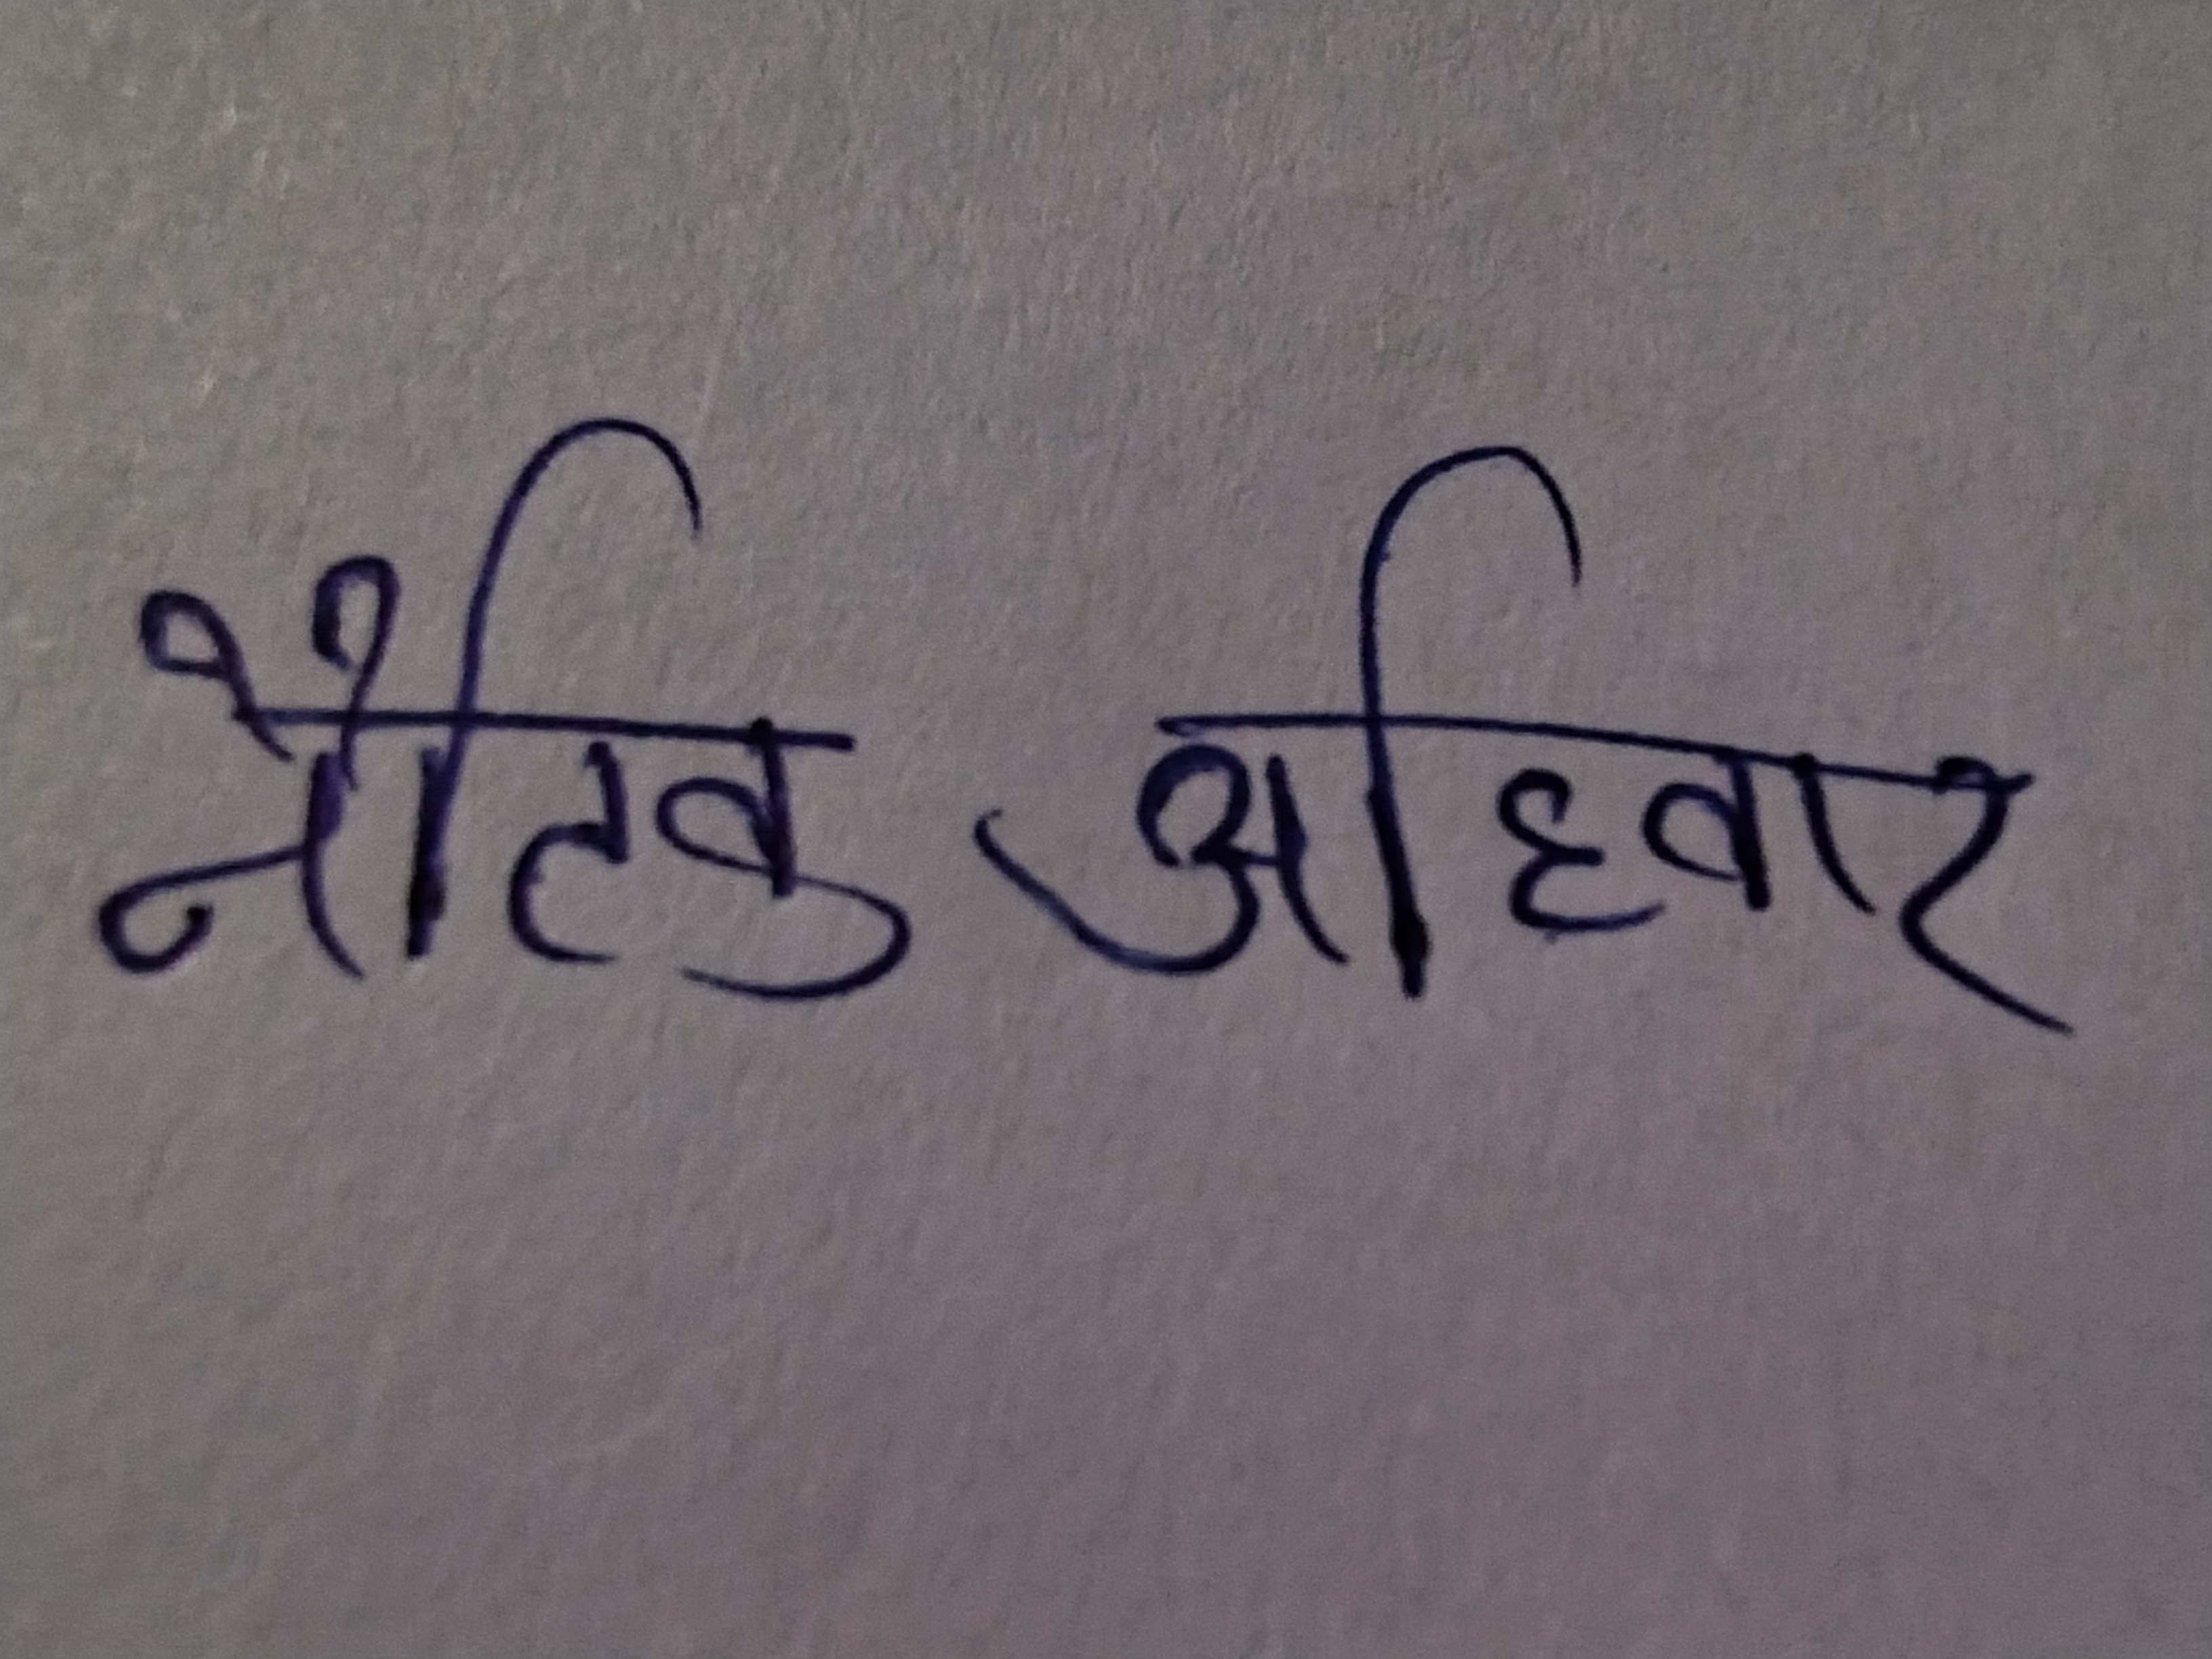 नैतिक अधिकार